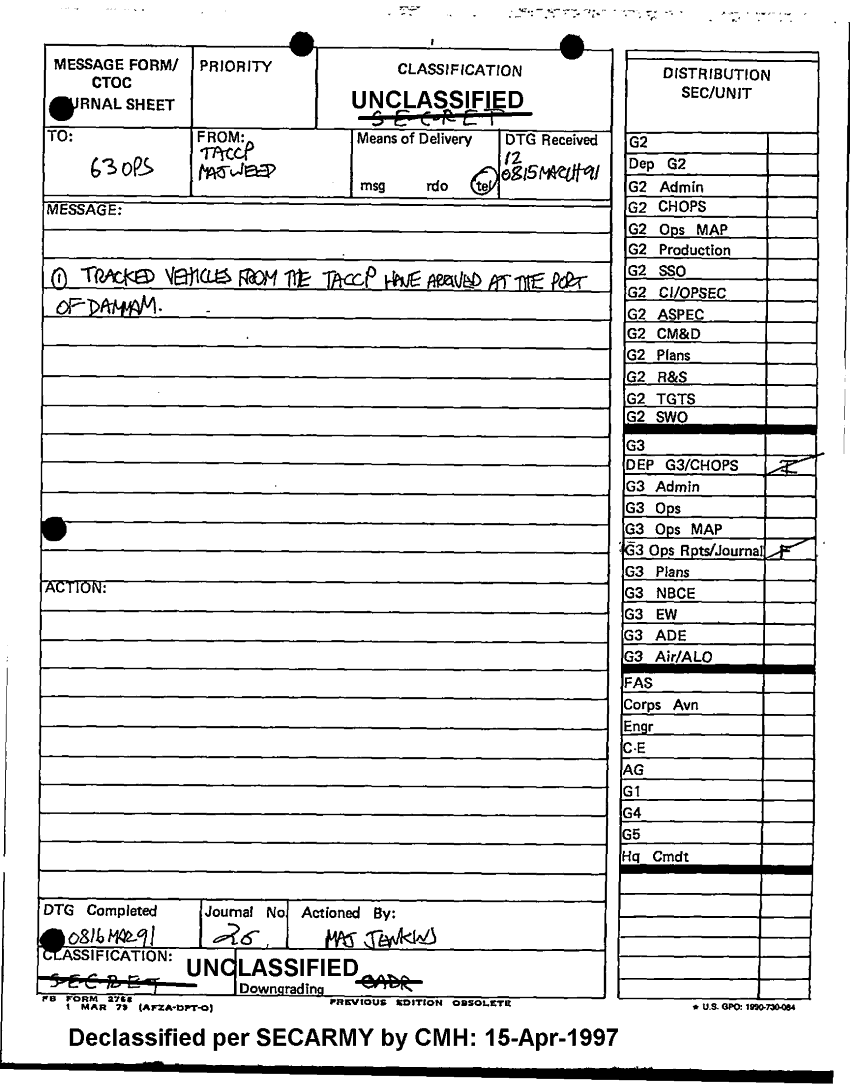 MESSAGE FORM/
CTOC
URNAL SHEET
PRIORITY
CLASSIFICATION
UNCLASSIFIED
SECRET
TO:
G3 OPS
FROM:
TACCP
MAJ WEED
Means of Delivery
msg rdo tel
DTG Received
12
0815 MARCH 91
MESSAGE:
① TRACKED VEHICLES FROM THE TACCP HAVE ARRIVED AT THE PORT
OF DAMMAM.
ACTION:
DTG Completed
0816 MAR 91
Journal No.
26
Actioned By:
MAJ JENKINS
CLASSIFICATION:
UNCLASSIFIED
SECRET
Downgrading
OADR
FB FORM 2768
1 MAR 79 (AFZA-DPT-O)
PREVIOUS EDITION OBSOLETE
DISTRIBUTION
SEC/UNIT
G2
Dep G2
G2 Admin
G2 CHOPS
G2 Ops MAP
G2 Production
G2 SSO
G2 CI/OPSEC
G2 ASPEC
G2 CM&D
G2 Plans
G2 R&S
G2 TGTS
G2 SWO
G3
DEP G3/CHOPS I
G3 Admin
G3 Ops
G3 Ops MAP
G3 Ops Rpts/Journal F
G3 Plans
G3 NBCE
G3 EW
G3 ADE
G3 Air/ALO
FAS
Corps Avn
Engr
C-E
AG
G1
G4
G5
Hq Cmdt
★ U.S. GPO: 1990-730-084
Declassified per SECARMY by CMH: 15-Apr-1997